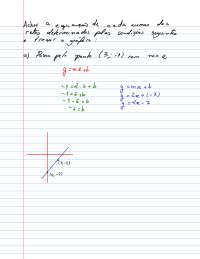 Achar a equação de cada uma das
retas determinadas pelas condições seguintes
e traçar o gráfico:
a) Passa pelo ponto (3, -1) com m=2
y = mx+b
-1 = 2 . 3 + b
-1 = 6 + b
-1 - 6 = b
-7 = b
y = mx + b
y = 2x + (-7)
y = 2x - 7
(3, -1)